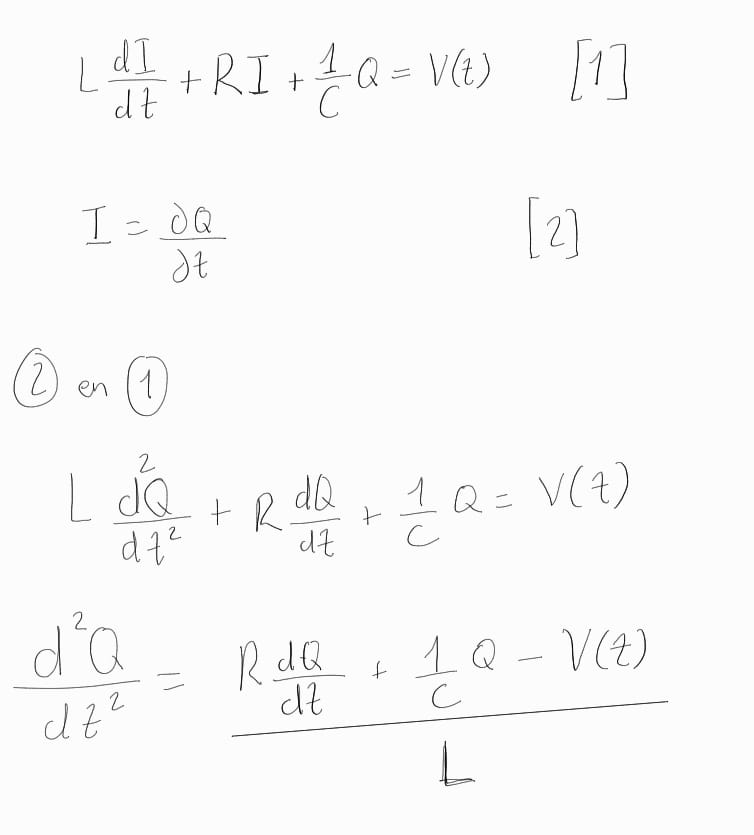 L dI/dt + RI + 1/C Q = V(t) [1]
I = ∂Q/∂t [2]
② en ①
L d²Q/dt² + R dQ/dt + 1/C Q = V(t)
d²Q/dt² = (R dQ/dt + 1/C Q - V(t))/L